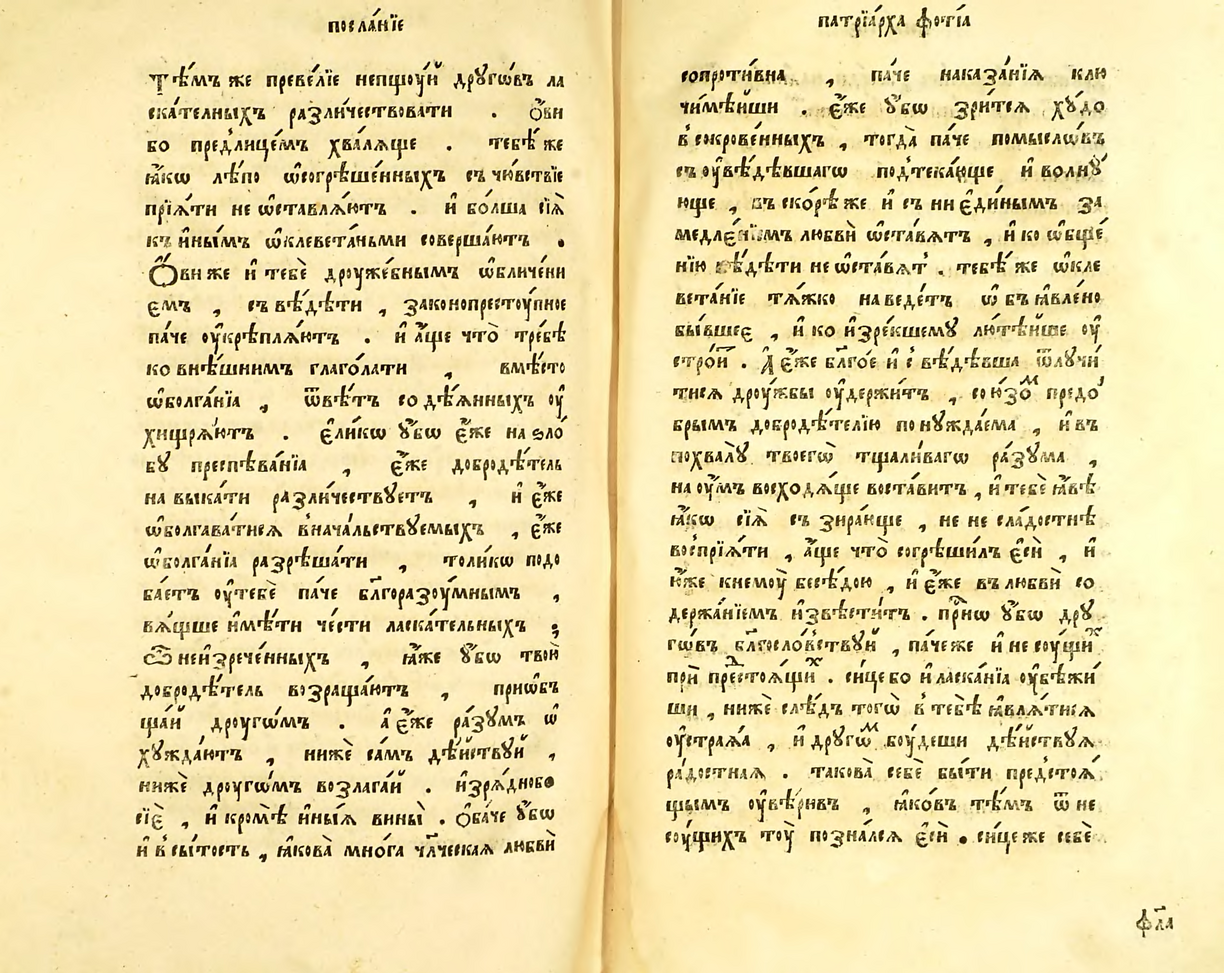 посла́нїе
Тѣ́мъ же преве́лїе непщꙋ́й дрꙋгѡ́въ ла
ска́телныхъ разли́чествовати . О҆́ви
бо предлице́мъ хва́лѧще . тебѣ́ же
ꙗ҆́кѡ лѣ́по ѿсогрѣше́нныхъ съ чю́вствїе
прїѧ́ти не ѡ҆ставлѧ́ютъ . и҆ бо́лша сїѧ̀
къ и҆ны́мъ ѡ҆клевета́ньми соверша́ютъ .
О҆́ви же и҆ тебѐ дроуже́бнымъ ѡ҆бличе́ни
емъ , съ вѣ́дѣти , законопрестоу́пное
па́че оу҆крѣплѧ́ютъ . и҆ а҆́ще что̀ тре́бѣ
ко внѣ́шнимъ глаго́лати , вмѣ́сто
ѡ҆болга́нїа , ѿвѣ́тъ со дѣ́ѧнныхъ оу҆
хищрѧ́ютъ . є҆ли́кѡ ᲂу҆́бѡ є҆́же на ѕло́
бꙋ преспѣва́нїа , є҆́же добродѣ́тель
на выка́ти разли́чествꙋетъ , и҆ є҆́же
ѡ҆болгава́тисѧ в нача́льствꙋемыхъ , є҆́же
ѡ҆болга́нїа разрѣша́ти , толи́кѡ подо
ба́етъ оу҆тебѐ па́че бл҃горазоу́мнымъ ,
вѧ́щше и҆мѣ́ти че́сти ласка́тельныхъ ;
Ѿ неизрече́нныхъ , ꙗ҆́же ᲂу҆́бѡ твою̀
добродѣ́тель возраща́ютъ , приѻбъ
ща́й дроугѡ́мъ . а҆ є҆́же ра́зꙋмъ ѡ҆
хꙋжда́ютъ , нижѐ са́мъ дѣ́йствꙋй ,
нижѐ дроугѡ́мъ возлага́й . и҆зрѧ́днобо
сїѐ , и҆ кромѣ̀ и҆ны́ѧ вины̀ . ѻ҆ба́че ᲂу҆́бѡ
и҆ в сы́тость , ꙗ҆кова̀ мно́га чл҃ческаѧ любвѝ
патрїа́рха фо́тїа
сопроти́вна , па́че наказа́нїѧ клю
чи́мѣйши . є҆́же ᲂу҆́бѡ зри́тсѧ хꙋ́до
в сокрове́нныхъ , тогда̀ па́че помыслѡ́въ
съ оу҆вѣ́дѣвшагѡ под̾тека́юще и҆ волнꙋ́
юще , въ ско́рѣ же и҆ съ ни є҆ди́нымъ за
медле́нїемъ любвѝ ѡ҆ста́вѧтъ , и҆ ко ѡ҆бще́
нїю вѣ́дѣти не ѡ҆ста́вѧт̾ . тебѣ́ же ѡ҆кле
вета́нїе тѧ́жко наведе́тъ ѡ҆бъ ꙗ҆вле́но
бы́вшее , и҆ ко и҆зре́кшемꙋ лютѣ́йше оу҆
стро́и҆ . А҆ є҆́же бл҃го́е и҆ с вѣ́дѣвша ѿлꙋчи́
тисѧ дроу́жбы оу҆держи́тъ , союзо́м̾ предо́
брымъ добродѣ́телїю понꙋжда́ема , и҆ въ
похвалꙋ̀ твоегѡ̀ тщали́вагѡ ра́зꙋма ,
на оу҆́мъ восходѧ́ще воста́витъ , и҆ тебѐ ꙗ҆́вѣ
ꙗ҆́кѡ сїѧ̀ съ зира́юще , не не сла́достнѣ
воспрїѧ́ти , а҆́ще что̀ согрѣши́лъ є҆сѝ , и҆
ю҆́же кнемоу̀ бесѣ́дою , и҆ є҆́же въ любвѝ со
держа́нїемъ и҆звѣсти́тъ . при́сѡ ᲂу҆́бѡ дрꙋ
гѡ́въ бл҃госло́вствꙋй , па́че же и҆ не соу́щи́х̾
прѝ престоѧ́щи́х̾ . си́це бо и҆ ласка́нїа оу҆бѣжи́
ши , нижѐ слѣ́дъ тогѡ̀ в тебѣ̀ ꙗ҆влѧ́тисѧ
оу҆стра́ѧѧ , и҆ дрꙋгѡ́м̾ бꙋ́деши дѣ́йствꙋѧ
ра́достнаѧ . такова̀ себѐ бы́ти предстоѧ́
щымъ оу҆вѣ́ривъ , ꙗ҆ко́въ тѣ́мъ ѿ не
соу́щихъ тоу̀ позна́лсѧ є҆сѝ . си́це же себѐ
фл҃а